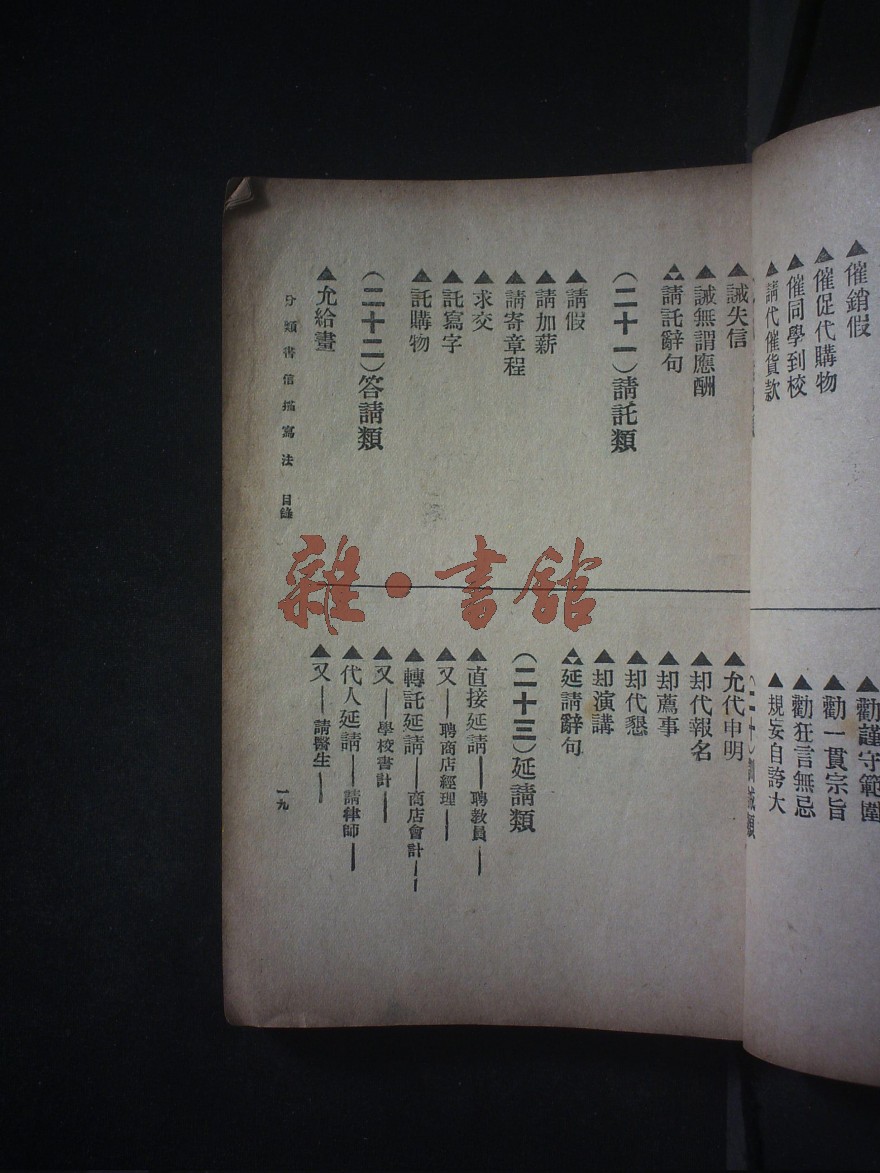 ▲催銷假
▲催促代購物
▲催同學到校
▲請代催貨款
▲勸謹守範圍
▲勸一貫宗旨
▲勸狂言無忌
▲規妄自誇大
▲誡失信
▲誡無謂應酬
▲請託辭句
（二十一）請託類
▲請假
▲請加薪
▲請寄章程
▲求交
▲託寫字
▲託購物
（二十二）答請類
▲允給畫
▲允代申明
▲却代報名
▲却薦事
▲却代懇
▲却演講
▲延請辭句
（二十三）延請類
▲直接延請——聘教員——
▲又——聘商店經理——
▲轉託延請——商店會計——
▲又——學校書計——
▲代人延請——請律師——
▲又——請醫生——
分類書信描寫法 目錄
一九
雜·書館